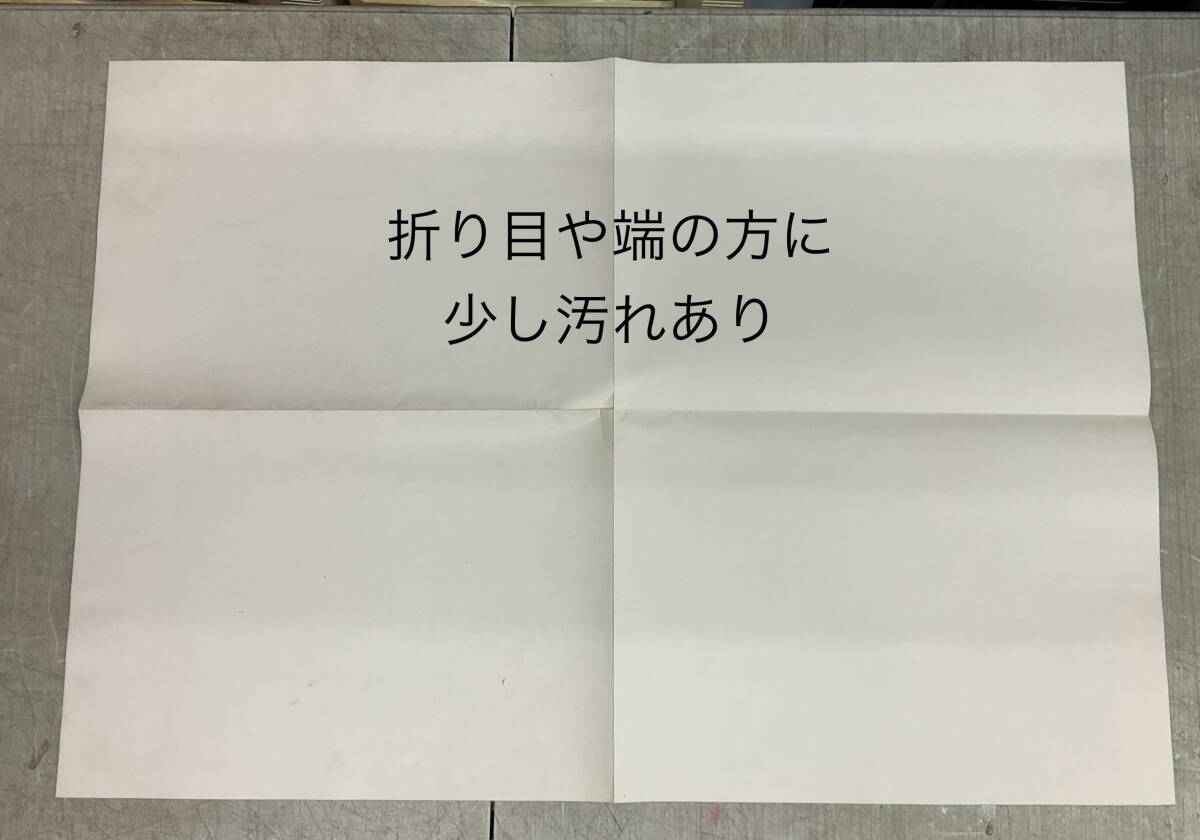 折り目や端の方に
少し汚れあり